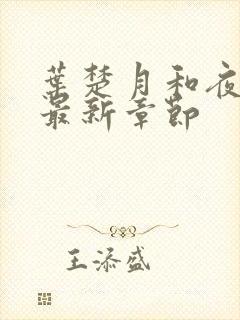 葉楚月和夜
最新章節
王添盛